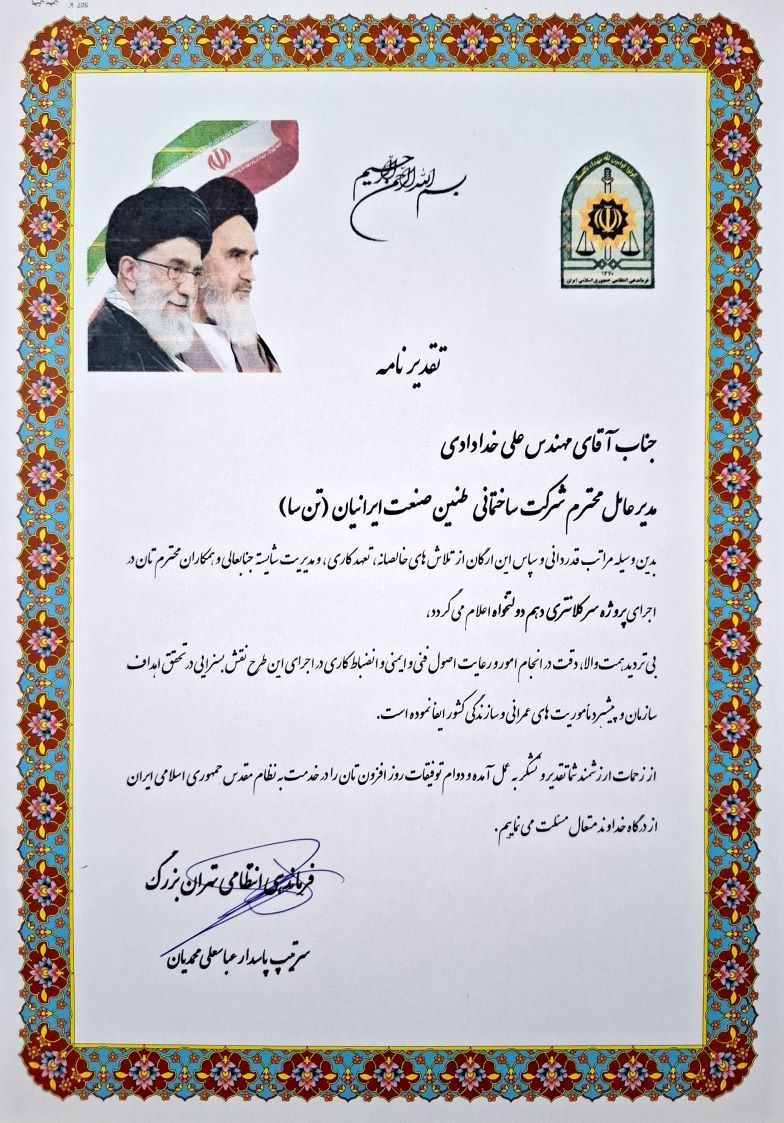 بسم الله الرحمن الرحیم
۱۳۷۰
فرماندهی انتظامی جمهوری اسلامی ایران
تقدیر نامه
جناب آقای مهندس علی خدادادی
مدیر عامل محترم شرکت ساختمانی طنین صنعت ایرانیان (تن سا)
بدین وسیله مراتب قدردانی و سپاس این ارگان از تلاش های خالصانه، تعهد کاری، و مدیریت شایسته جنابعالی و همکاران محترم تان در
اجرای پروژه سرکلانتری دهم دولتخواه اعلام می گردد،
بی تردید همت والا، دقت در انجام امور و رعایت اصول فنی و ایمنی و انضباط کاری در اجرای این طرح نقش بسزایی در تحقق اهداف
سازمان و پیشبرد مأموریت های عمرانی و سازندگی کشور ایفا نموده است.
از زحمات ارزشمند شما تقدیر و تشکر به عمل آمده و دوام توفیقات روز افزون تان را در خدمت به نظام مقدس جمهوری اسلامی ایران
از درگاه خداوند متعال مسئلت می نماییم.
فرماندهی انتظامی تهران بزرگ
سرتیپ پاسدار عباسعلی محمدیان